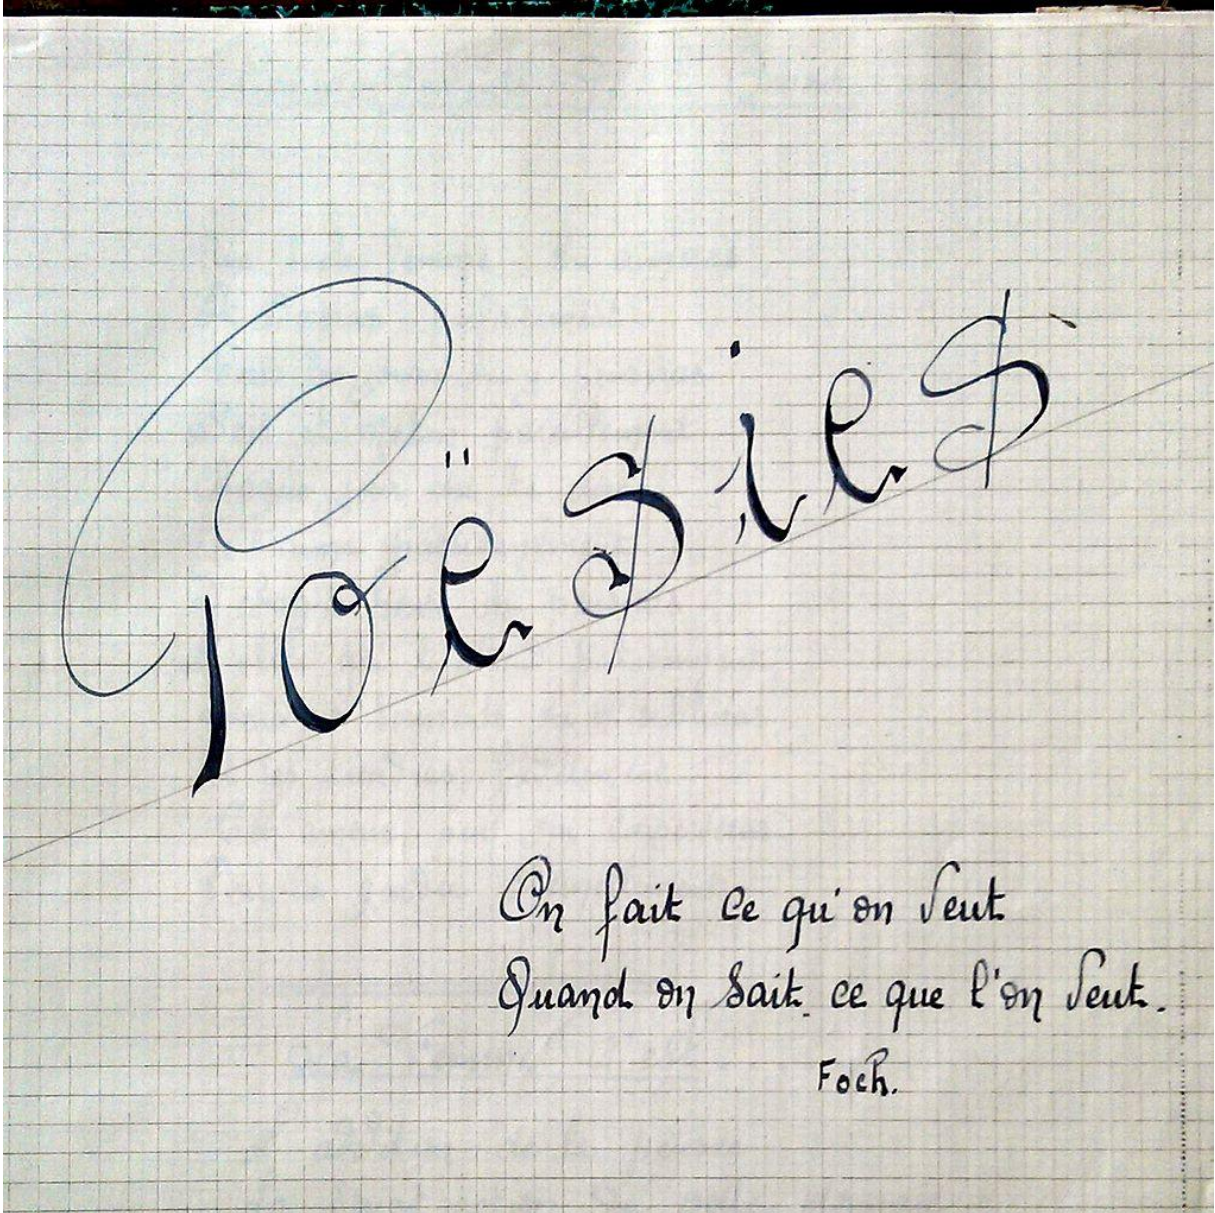 Poësies
On fait ce qu'on veut
Quand on sait ce que l'on veut.
Foch.